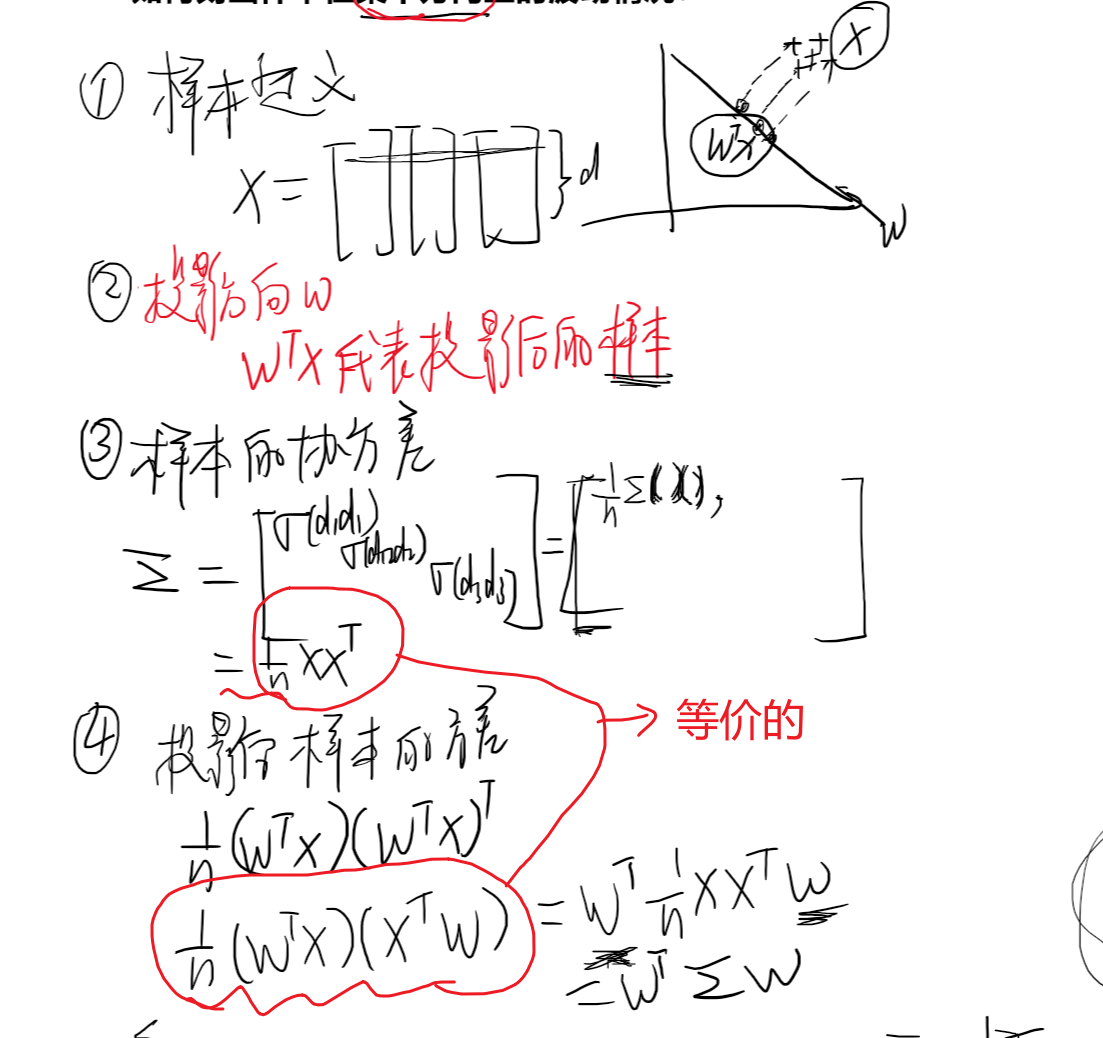 ① 样本定义
X
X = [ ] [ ] [ ] } d
WᵀX
W
② 投影方向W
WᵀX 代表投影后的样本
③ 样本的协方差
Σ = [ σ(d₁d₁) σ(d₂d₂) σ(d₃d₃) ] = [ 1/n Σ( ), ]
= 1/n XXᵀ
等价的
④ 投影后样本的方差
1/n (WᵀX)(WᵀX)ᵀ
1/n (WᵀX)(XᵀW) = Wᵀ 1/n XXᵀ W
= Wᵀ Σ W